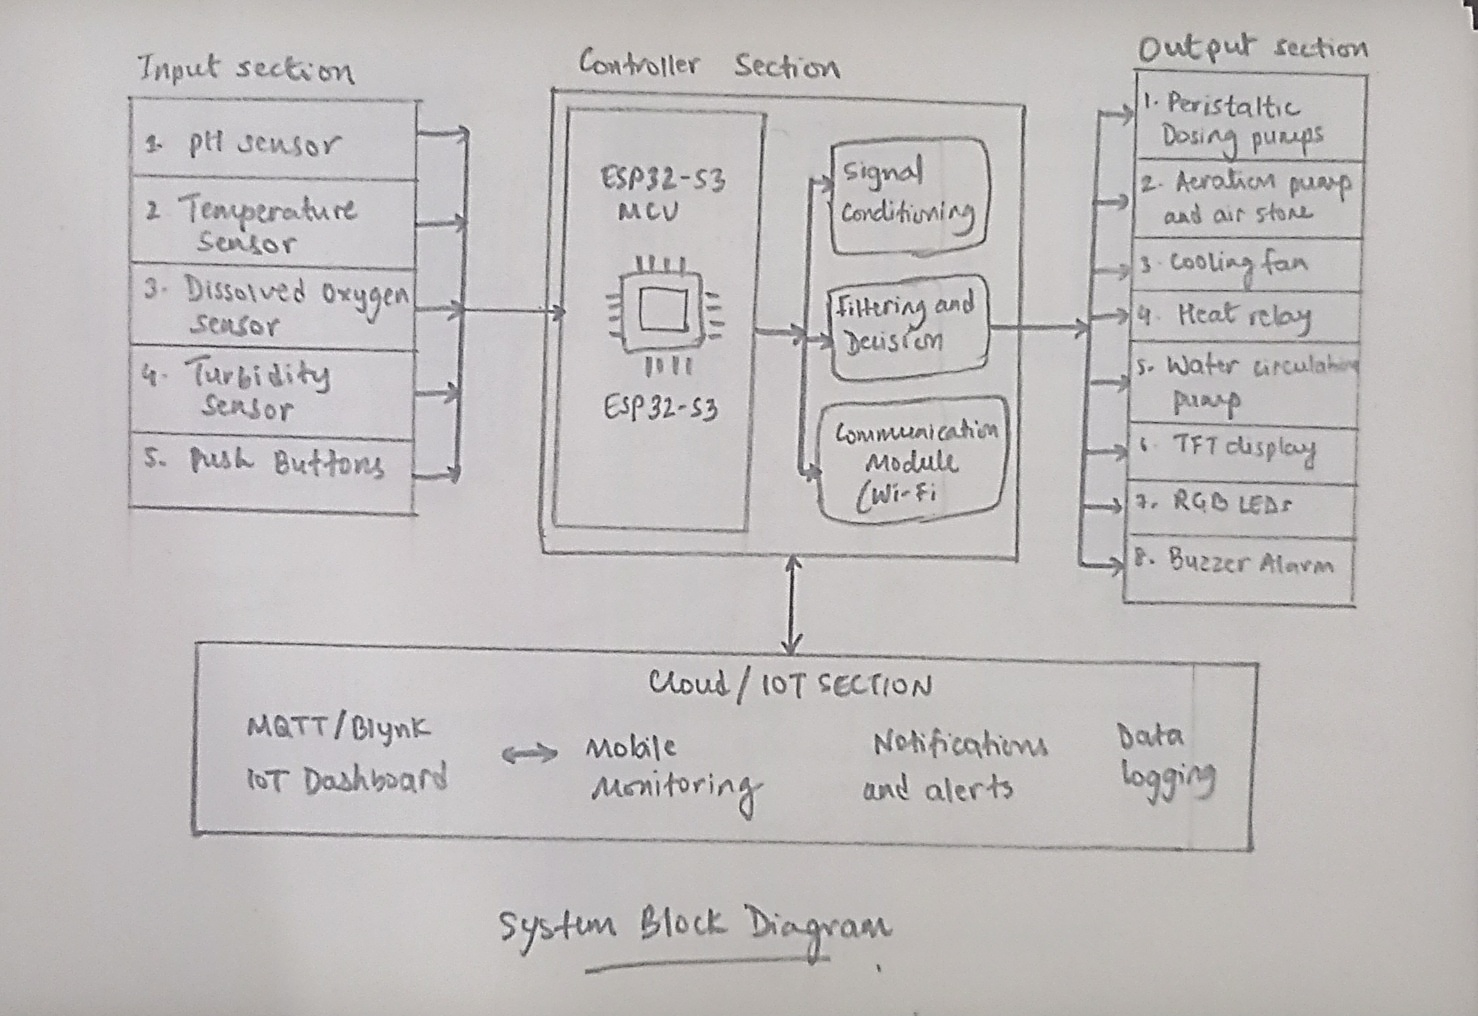 Input section
1. pH sensor
2 Temperature
sensor
3. Dissolved Oxygen
sensor
4. Turbidity
sensor
5. Push Buttons
Controller Section
ESP32-S3
MCU
ESP32-S3
Signal
Conditioning
Filtering and
Decision
Communication
Module
(Wi-Fi
Output section
1. Peristaltic
Dosing pumps
2. Aeration pump
and air stone
3. Cooling fan
4. Heat relay
5. Water circulation
pump
6. TFT display
7. RGB LEDs
8. Buzzer Alarm
Cloud/IOT SECTION
MQTT/Blynk
IoT Dashboard
Mobile
Monitoring
Notifications
and alerts
Data
logging
System Block Diagram